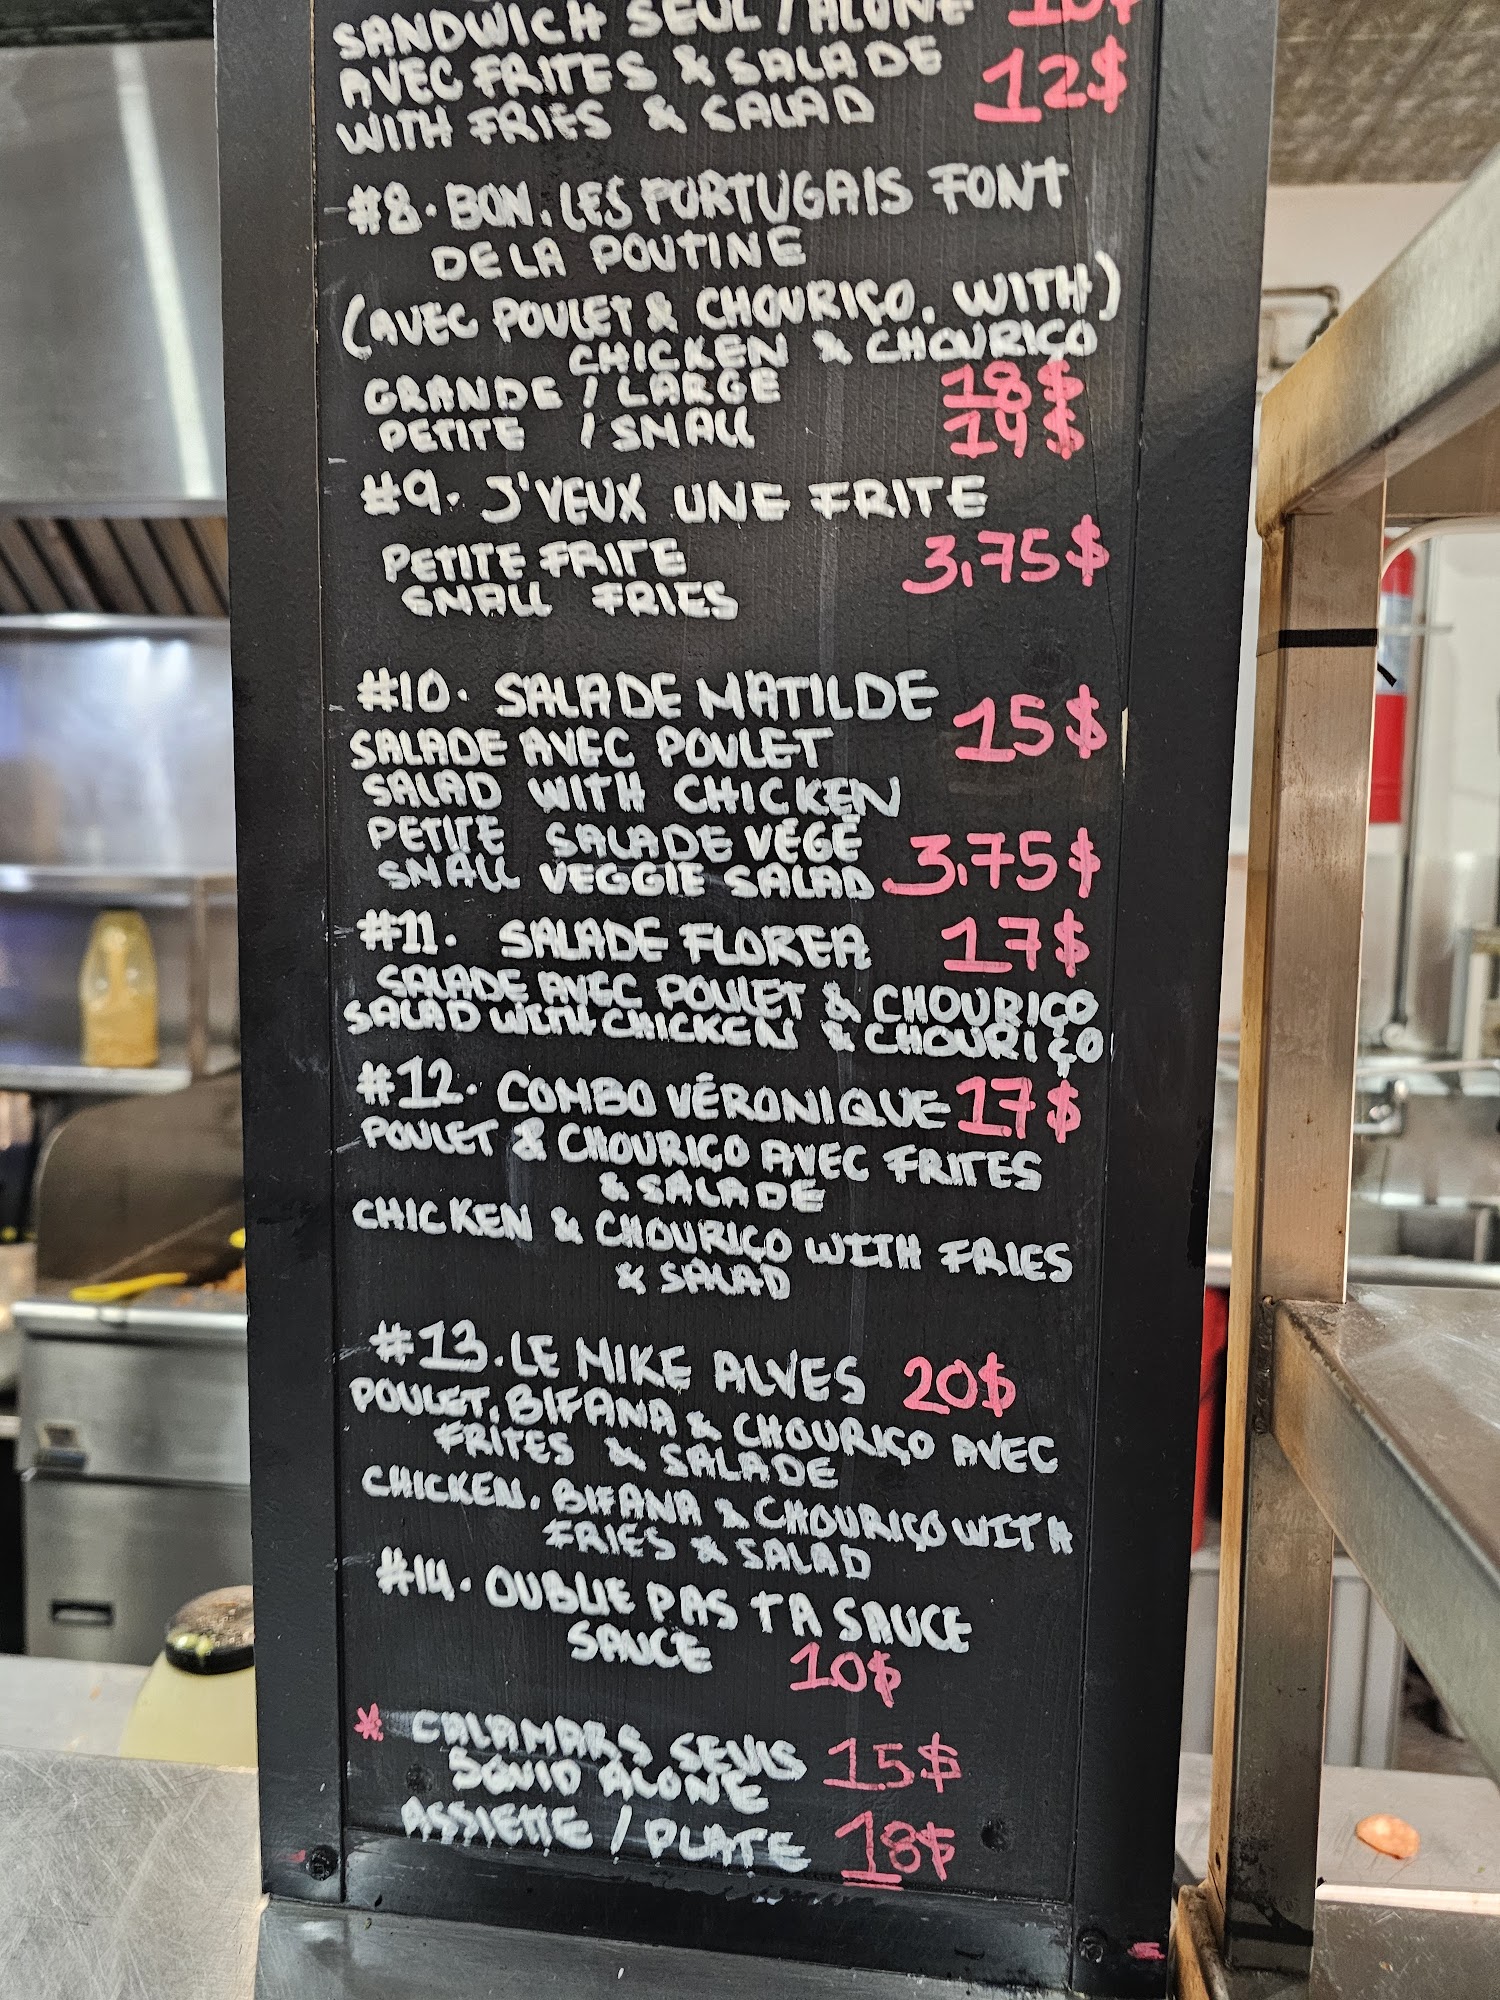 SANDWICH SEUL / ALONE 10$
AVEC FRITES & SALADE
WITH FRIES & SALAD 12$
#8. BON, LES PORTUGAIS FONT
DE LA POUTINE
(AVEC POULET & CHOURIÇO, WITH)
CHICKEN & CHOURIÇO
GRANDE / LARGE 18$
PETITE / SMALL 14$
#9. J'VEUX UNE FRITE
PETITE FRITE 3,75$
SMALL FRIES
#10. SALADE MATILDE 15$
SALADE AVEC POULET
SALAD WITH CHICKEN
PETITE SALADE VÉGÉ
SMALL VEGGIE SALAD 3,75$
#11. SALADE FLOREA 17$
SALADE AVEC POULET & CHOURIÇO
SALAD WITH CHICKEN & CHOURIÇO
#12. COMBO VÉRONIQUE 17$
POULET & CHOURIÇO AVEC FRITES
& SALADE
CHICKEN & CHOURIÇO WITH FRIES
& SALAD
#13. LE MIKE ALVES 20$
POULET, BIFANA & CHOURIÇO AVEC
FRITES & SALADE
CHICKEN, BIFANA & CHOURIÇO WITH
FRIES & SALAD
#14. OUBLIE PAS TA SAUCE
SAUCE 10$
* CALAMARS SEULS 15$
SQUID ALONE
ASSIETTE / PLATE 18$